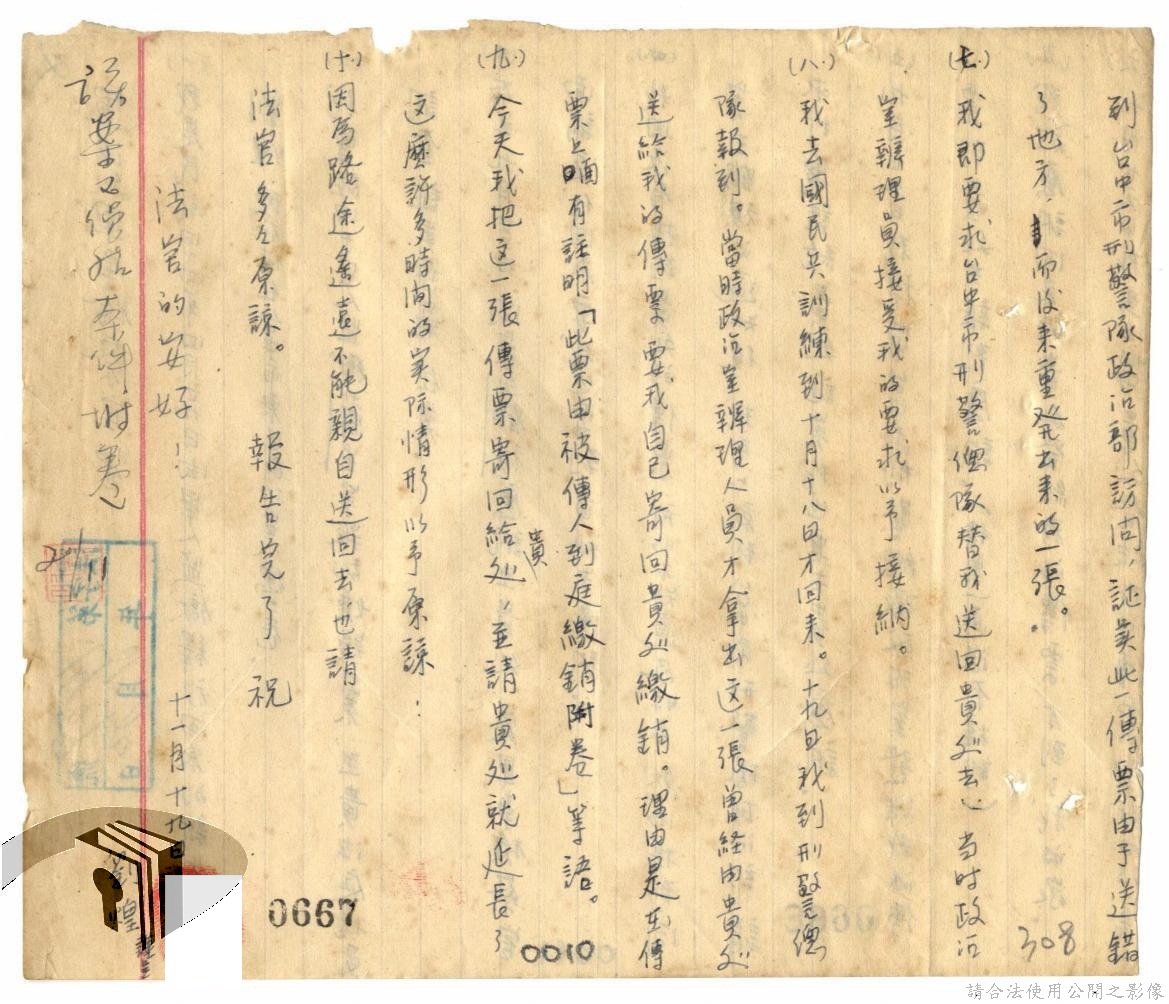 到台中市刑警隊政治部訪问，証实此一傳票由于送錯
了地方，而後来重発出来的一張。
(七.)我即要求台中市刑警總隊替我送回貴处去，当时政治
室辦理員接受我的要求以予接納。
(八.)我去國民兵訓練到十月十八日才回来。十九日我到刑警總
隊報到。當時政治室辦理人員才拿出这一張曾经由貴处
送給我的傳票要我自己寄回貴处繳销。理由是在傳
票上面有註明「此票由被傳人到庭繳銷附卷」等語。
(九.)今天我把这一張傳票寄回給貴处，並請貴处就延長了
这麼許多時间的实际情形以予原諒．
(十.)因為路途遙遠不能親自送回去也請
法官多多原諒。 報告完了 祝
法官的安好！
十一月十九日
劉 煌
該案已偵結本件附卷
308
0667
0010
請合法使用公開之影像